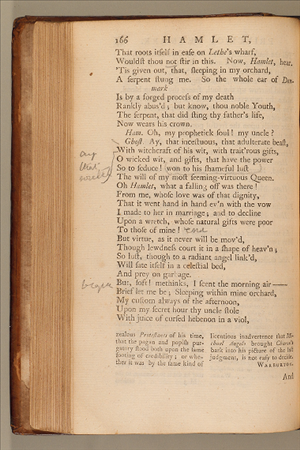 166 HAMLET,
That roots itself in ease on Lethe's wharf,
Wouldst thou not stir in this. Now, Hamlet, hear.
'Tis given out, that, sleeping in my orchard,
A serpent stung me. So the whole ear of Den-
mark
Is by a forged process of my death
Rankly abus'd; but know, thou noble Youth,
The serpent, that did sting thy father's life,
Now wears his crown.
Ham. Oh, my prophetick soul! my uncle?
Ghost. Ay, that incestuous, that adulterate beast,
With witchcraft of his wit, with trait'rous gifts,
O wicked wit, and gifts, that have the power
So to seduce! won to his shameful lust
The will of my most seeming-virtuous Queen.
Oh Hamlet, what a falling off was there!
From me, whose love was of that dignity,
That it went hand in hand ev'n with the vow
I made to her in marriage; and to decline
Upon a wretch, whose natural gifts were poor
To those of mine!
But virtue, as it never will be mov'd,
Though lewdness court it in a shape of heav'n;
So lust, though to a radiant angel link'd,
Will sate itself in a celestial bed,
And prey on garbage.
But, soft! methinks, I scent the morning air——
Brief let me be; Sleeping within mine orchard,
My custom always of the afternoon,
Upon my secret hour thy uncle stole
With juice of cursed hebenon in a viol,
zealous Protestants of his time,
that the pagan and popish pur-
gatory stood both upon the same
footing of credibility; or whe-
ther it was by the same kind of
licentious inadvertence that Mi-
chael Angelo brought Charon's
bark into his picture of the last
judgment, is not easy to decide.
WARBURTON.
And